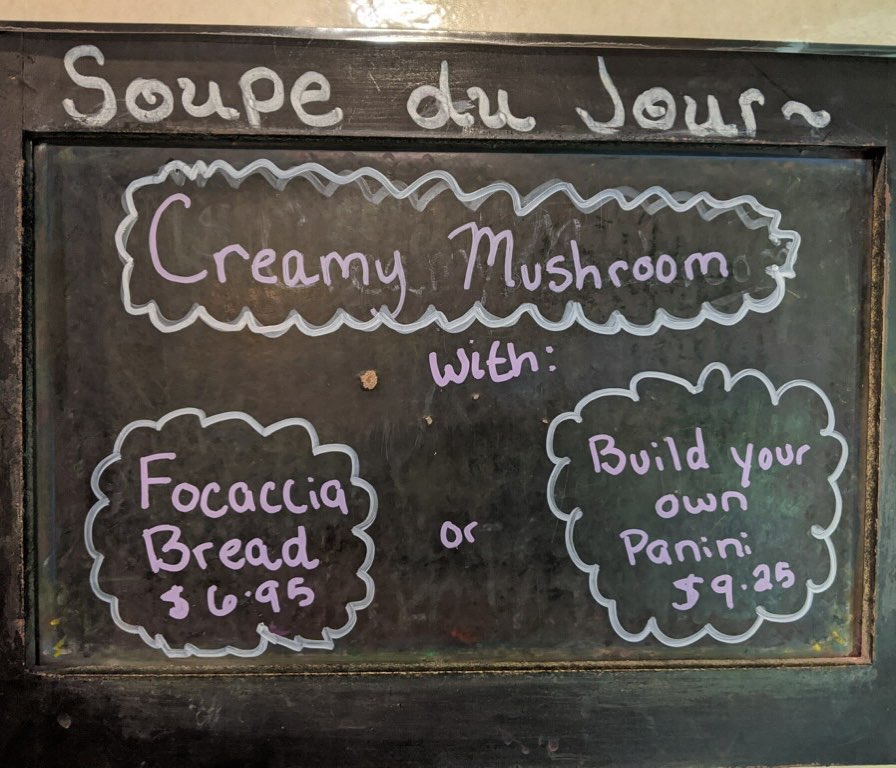 Soupe du Jour~
Creamy Mushroom
with:
Focaccia
Bread
$6.95
or
Build your
own
Panini
$9.25